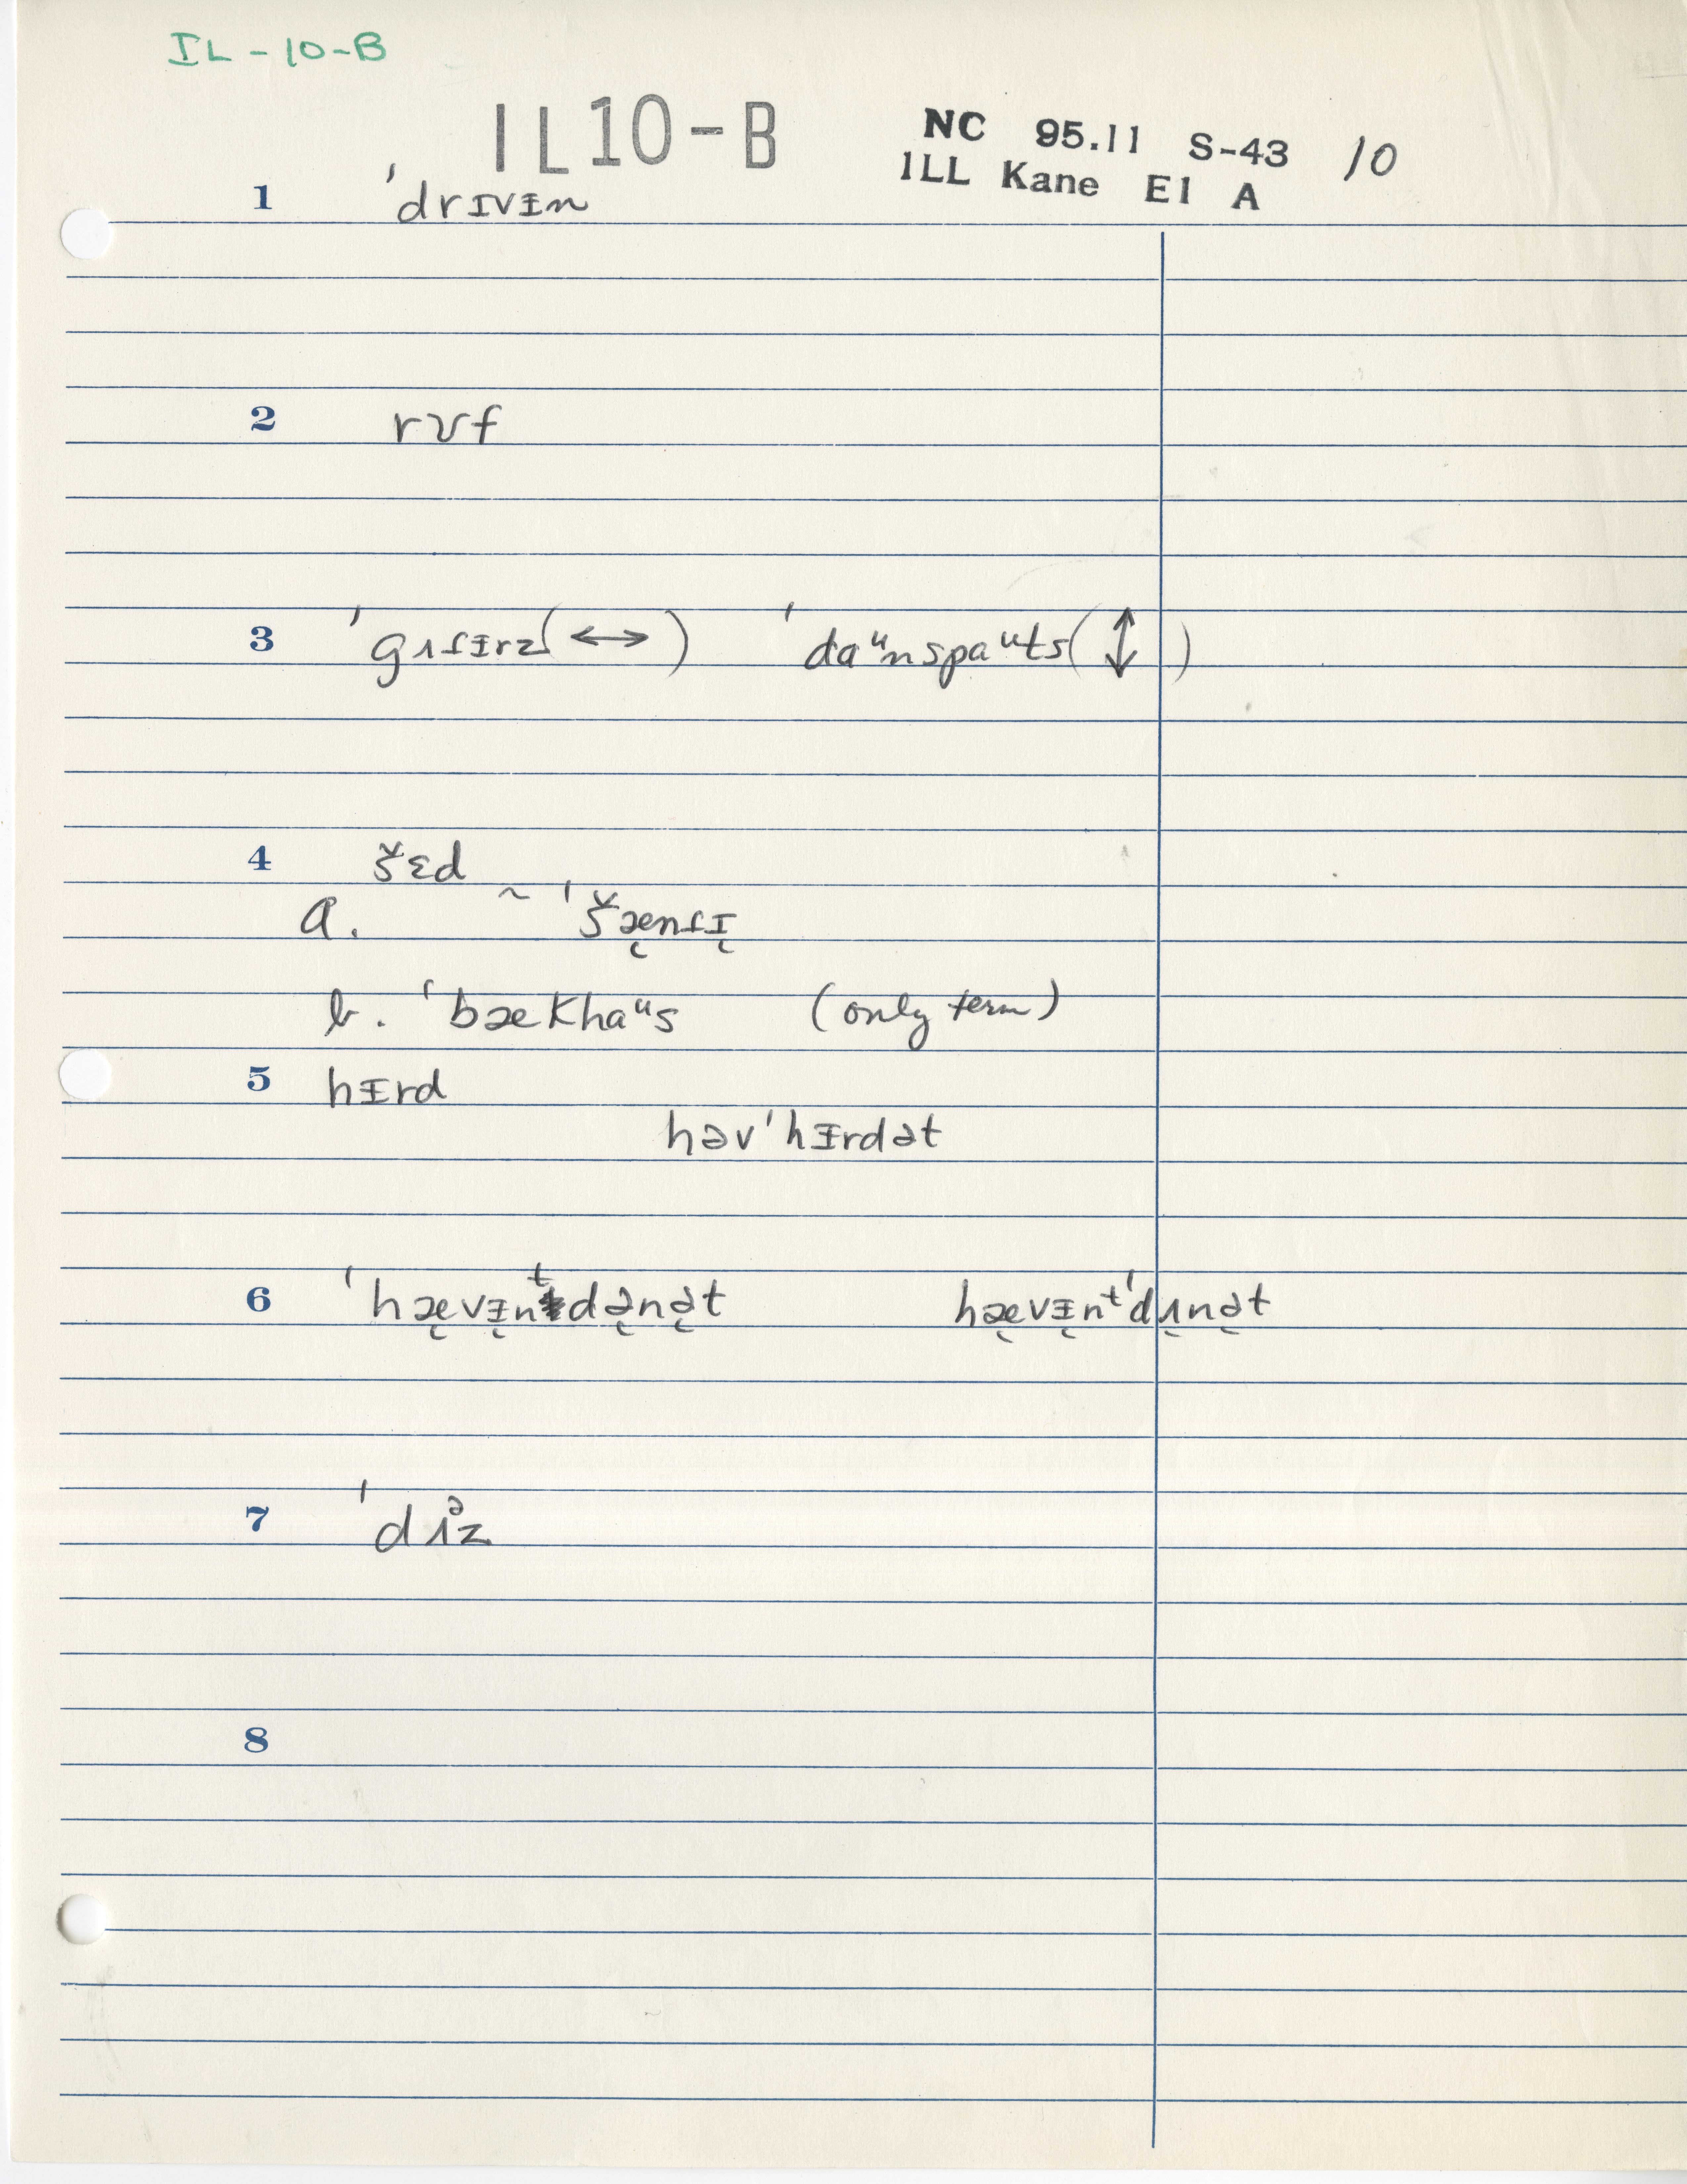 IL-10-B
IL10-B
NC 95.11 S-43 10
ILL Kane E1 A
1 ˈdrɪvᵻn
2 rʊf
3 ˈgʌɾᵻrz(↔) ˈdaᵘnspaᵘts(↕)
4 šɛd
a. ~ ˈšæ̨nɾɪ̨
b. ˈbækhaᵘs (only term)
5 hᵻrd
həvˈhᵻrdət
6 ˈhæ̨vᵻ̨nᵗdə̨nə̨t hæ̨vᵻ̨nᵗˈdʌ̨nə̨t
7 ˈdʌᵊz
8